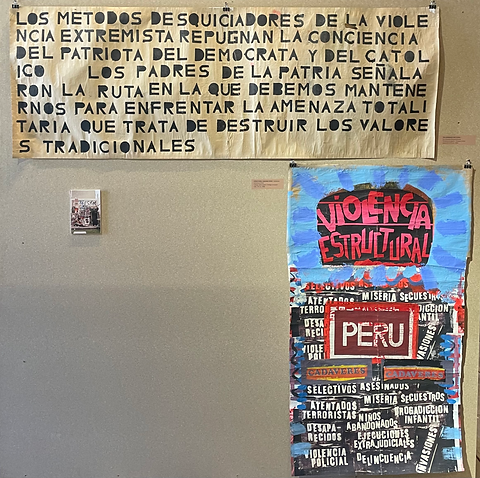 LOS METODOS DESQUICIADORES DE LA VIOLE
NCIA EXTREMISTA REPUGNAN LA CONCIENCIA
DEL PATRIOTA DEL DEMOCRATA Y DEL CATOL
ICO LOS PADRES DE LA PATRIA SEÑALA
RON LA RUTA EN LA QUE DEBEMOS MANTENE
RNOS PARA ENFRENTAR LA AMENAZA TOTALI
TARIA QUE TRATA DE DESTRUIR LOS VALORE
S TRADICIONALES
VIOLENCIA
ESTRUCTURAL
SELECTIVOS ASESINADOS
ATENTADOS MISERIA SECUESTRO
PERU
CADAVERES CADAVERES
SELECTIVOS ASESINADOS
MISERIA SECUESTROS
ATENTADOS
TERRORISTAS
NIÑOS
ABANDONADOS
DROGADICCION
INFANTIL
DESAPA-
RECIDOS
EJECUCIONES
EXTRAJUDICIALES
INVASIONES
VIOLENCIA
POLICIAL
DELINCUENCIA